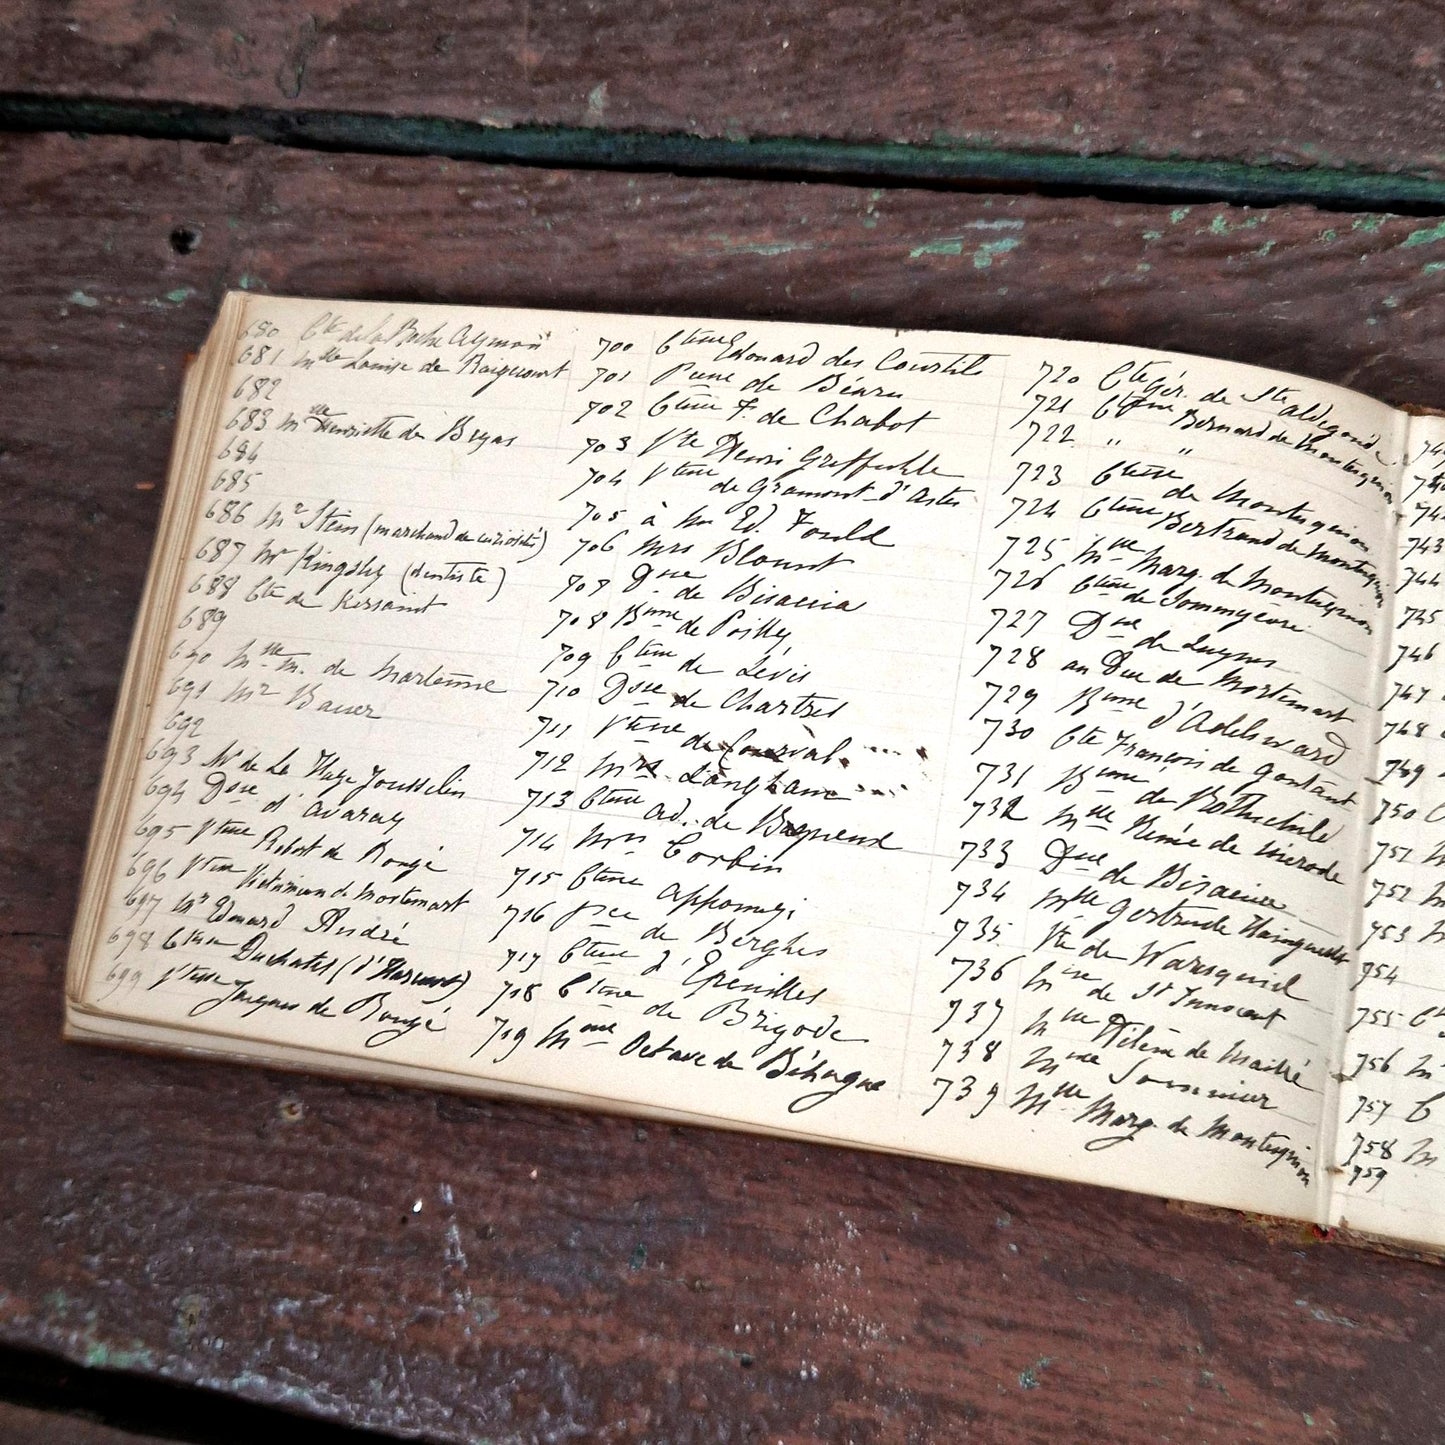 680 Cte de la Roche Aymon
681 Mlle Louise de Raigecourt
682
683 Mlle Henriette de Bryas
684
685
686 Mr Stein (marchand de curiosités)
687 Mr Kingsley (dentiste)
688 Cte de Kersaint
689
690 Mlle M. de Martenne
691 Mr Bauer
692
693 Mr de La Haye Jousselin
694 Dsse d'Avaray
695 Vtesse Robert de Rougé
696 Vtesse de Mortemart
697 Mr Edouard André
698 Ctesse Duchatel (d'Harcourt)
699 Vtesse Jacques de Rougé
700 Ctesse Edouard des Courtils
701 de Béarn
702 Ctesse F. de Chabot
703 Vte Henri Greffuhle
704 Vtesse de Gramont d'Aster
705 à Mr Ed. Fould
706 Mrs Blount
707 Dsse de Bisaccia
708 Bnne de Poilly
709 Ctesse de Lévis
710 Dsse de Chartres
711 Vtesse de Courval
712 Mrs Langham
713 Ctesse Ad. de
714 Mrs Corbin
715 Ctesse Apponyi
716 Psse de Berghes
717 Ctesse d'Epreville
718 Ctesse de Brigode
719 Mme Octave de Béhague
720 Cte Gér. de Ste Aldegonde
721 Ctesse Bernard de Montesquiou
722 " "
723 Ctesse de Montesquiou
724 Ctesse Bertrand de Montesquiou
725 Mlle Marg. de Montesquiou
726 Ctesse de Sommyèvre
727 Dsse de Luynes
728 au Duc de Mortemart
729 Bnne d'Adelsward
730 Cte François de Gontaut
731 Bnne de Rothschild
732 Mlle Renée de Mérode
733 Dsse de Bisaccia
734 Mlle Gertrude
735 Vte de
736 Mise de St Innocent
737 Mlle Hélène de Maillé
738 Mme Sommier
739 Mlle Marg. de Montesquiou
743
744
745
746
747
748
749
750
751
752
753
754
755
756
757
758
759